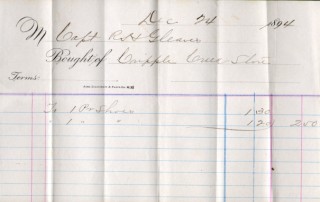 Dec 24 1894
M Capt R H Gleaves
Bought of Cripple Creek Store
Terms
To 1 Pr Shoes 1 30
" 1 " " 1 20 2 50